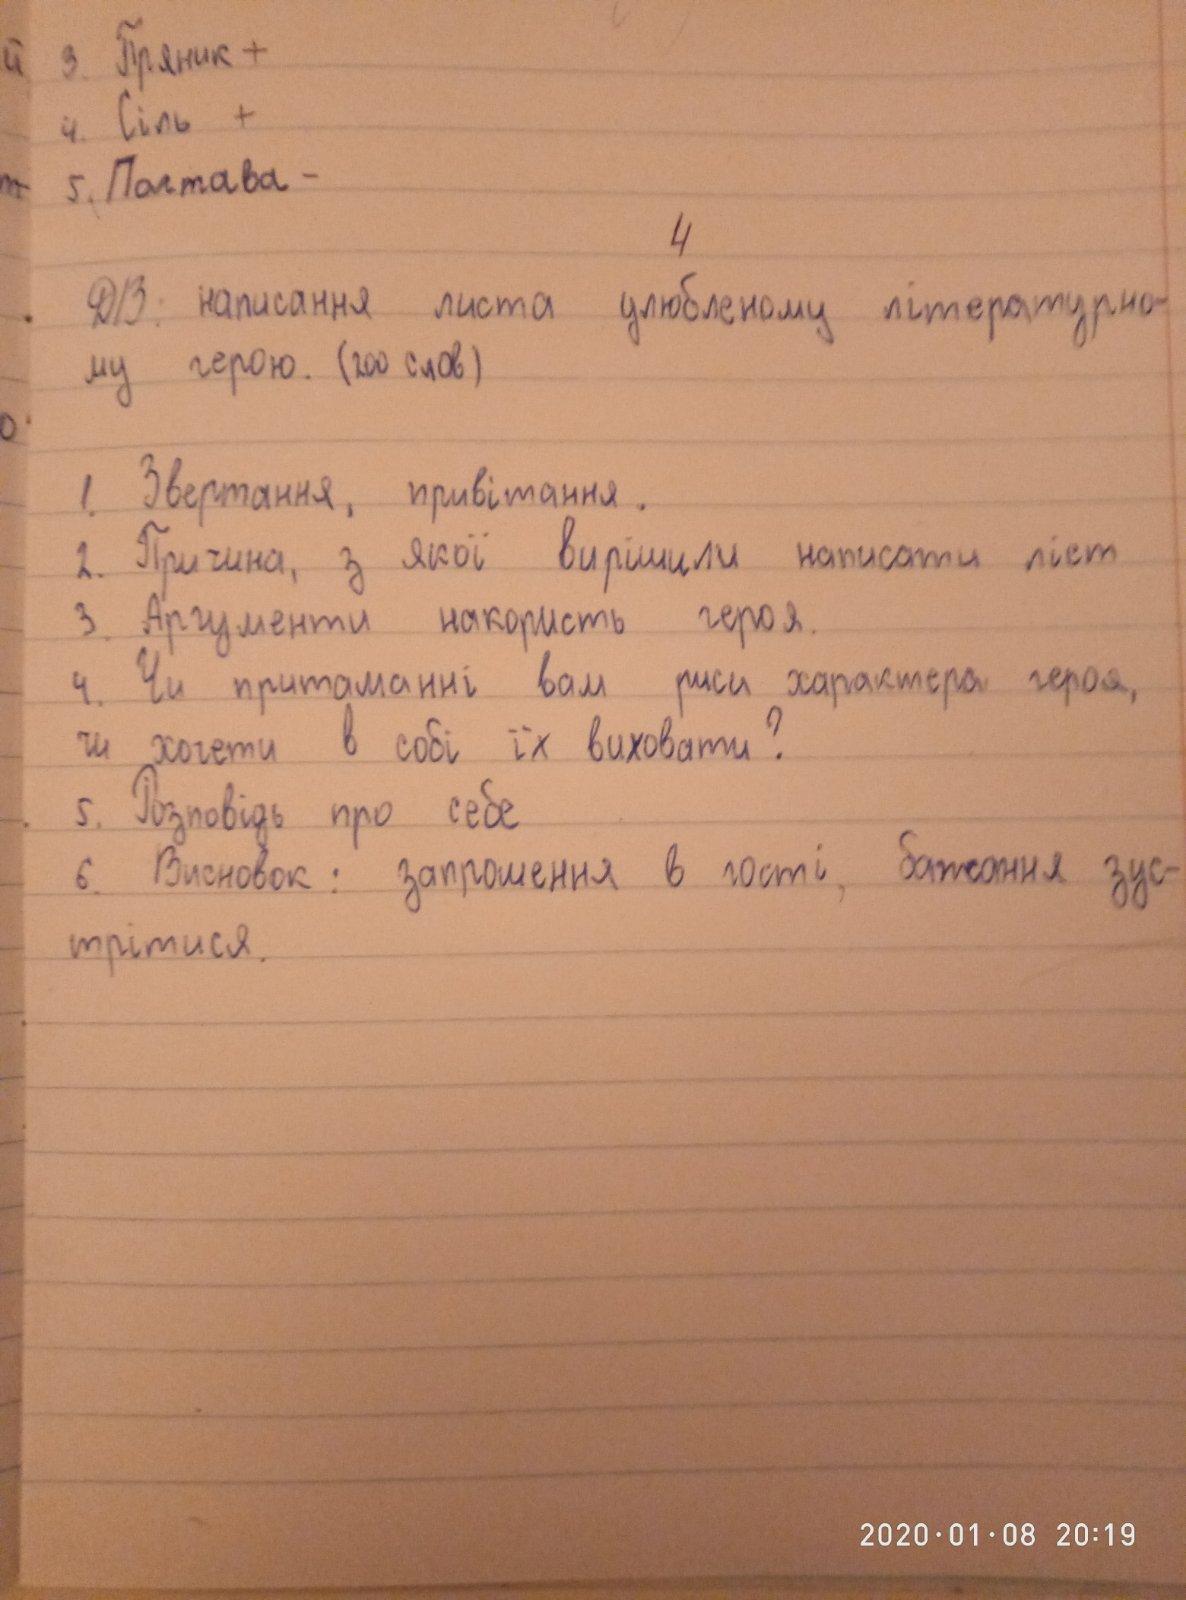 й 3. Пряник +
4. Сіль +
5. Полтава -
4
Д/З: написання листа улюбленому літературно-
му герою. (200 слов)
о
1. Звертання, привітання.
2. Причина, з якої вирішили написати ліст
3. Аргументи накористь героя.
4. Чи притаманні вам риси характера героя,
чи хочети в собі їх виховати?
5. Розповідь про себе
6. Висновок: запрошення в гості, бажання зус-
трітися.
2020·01·08 20:19